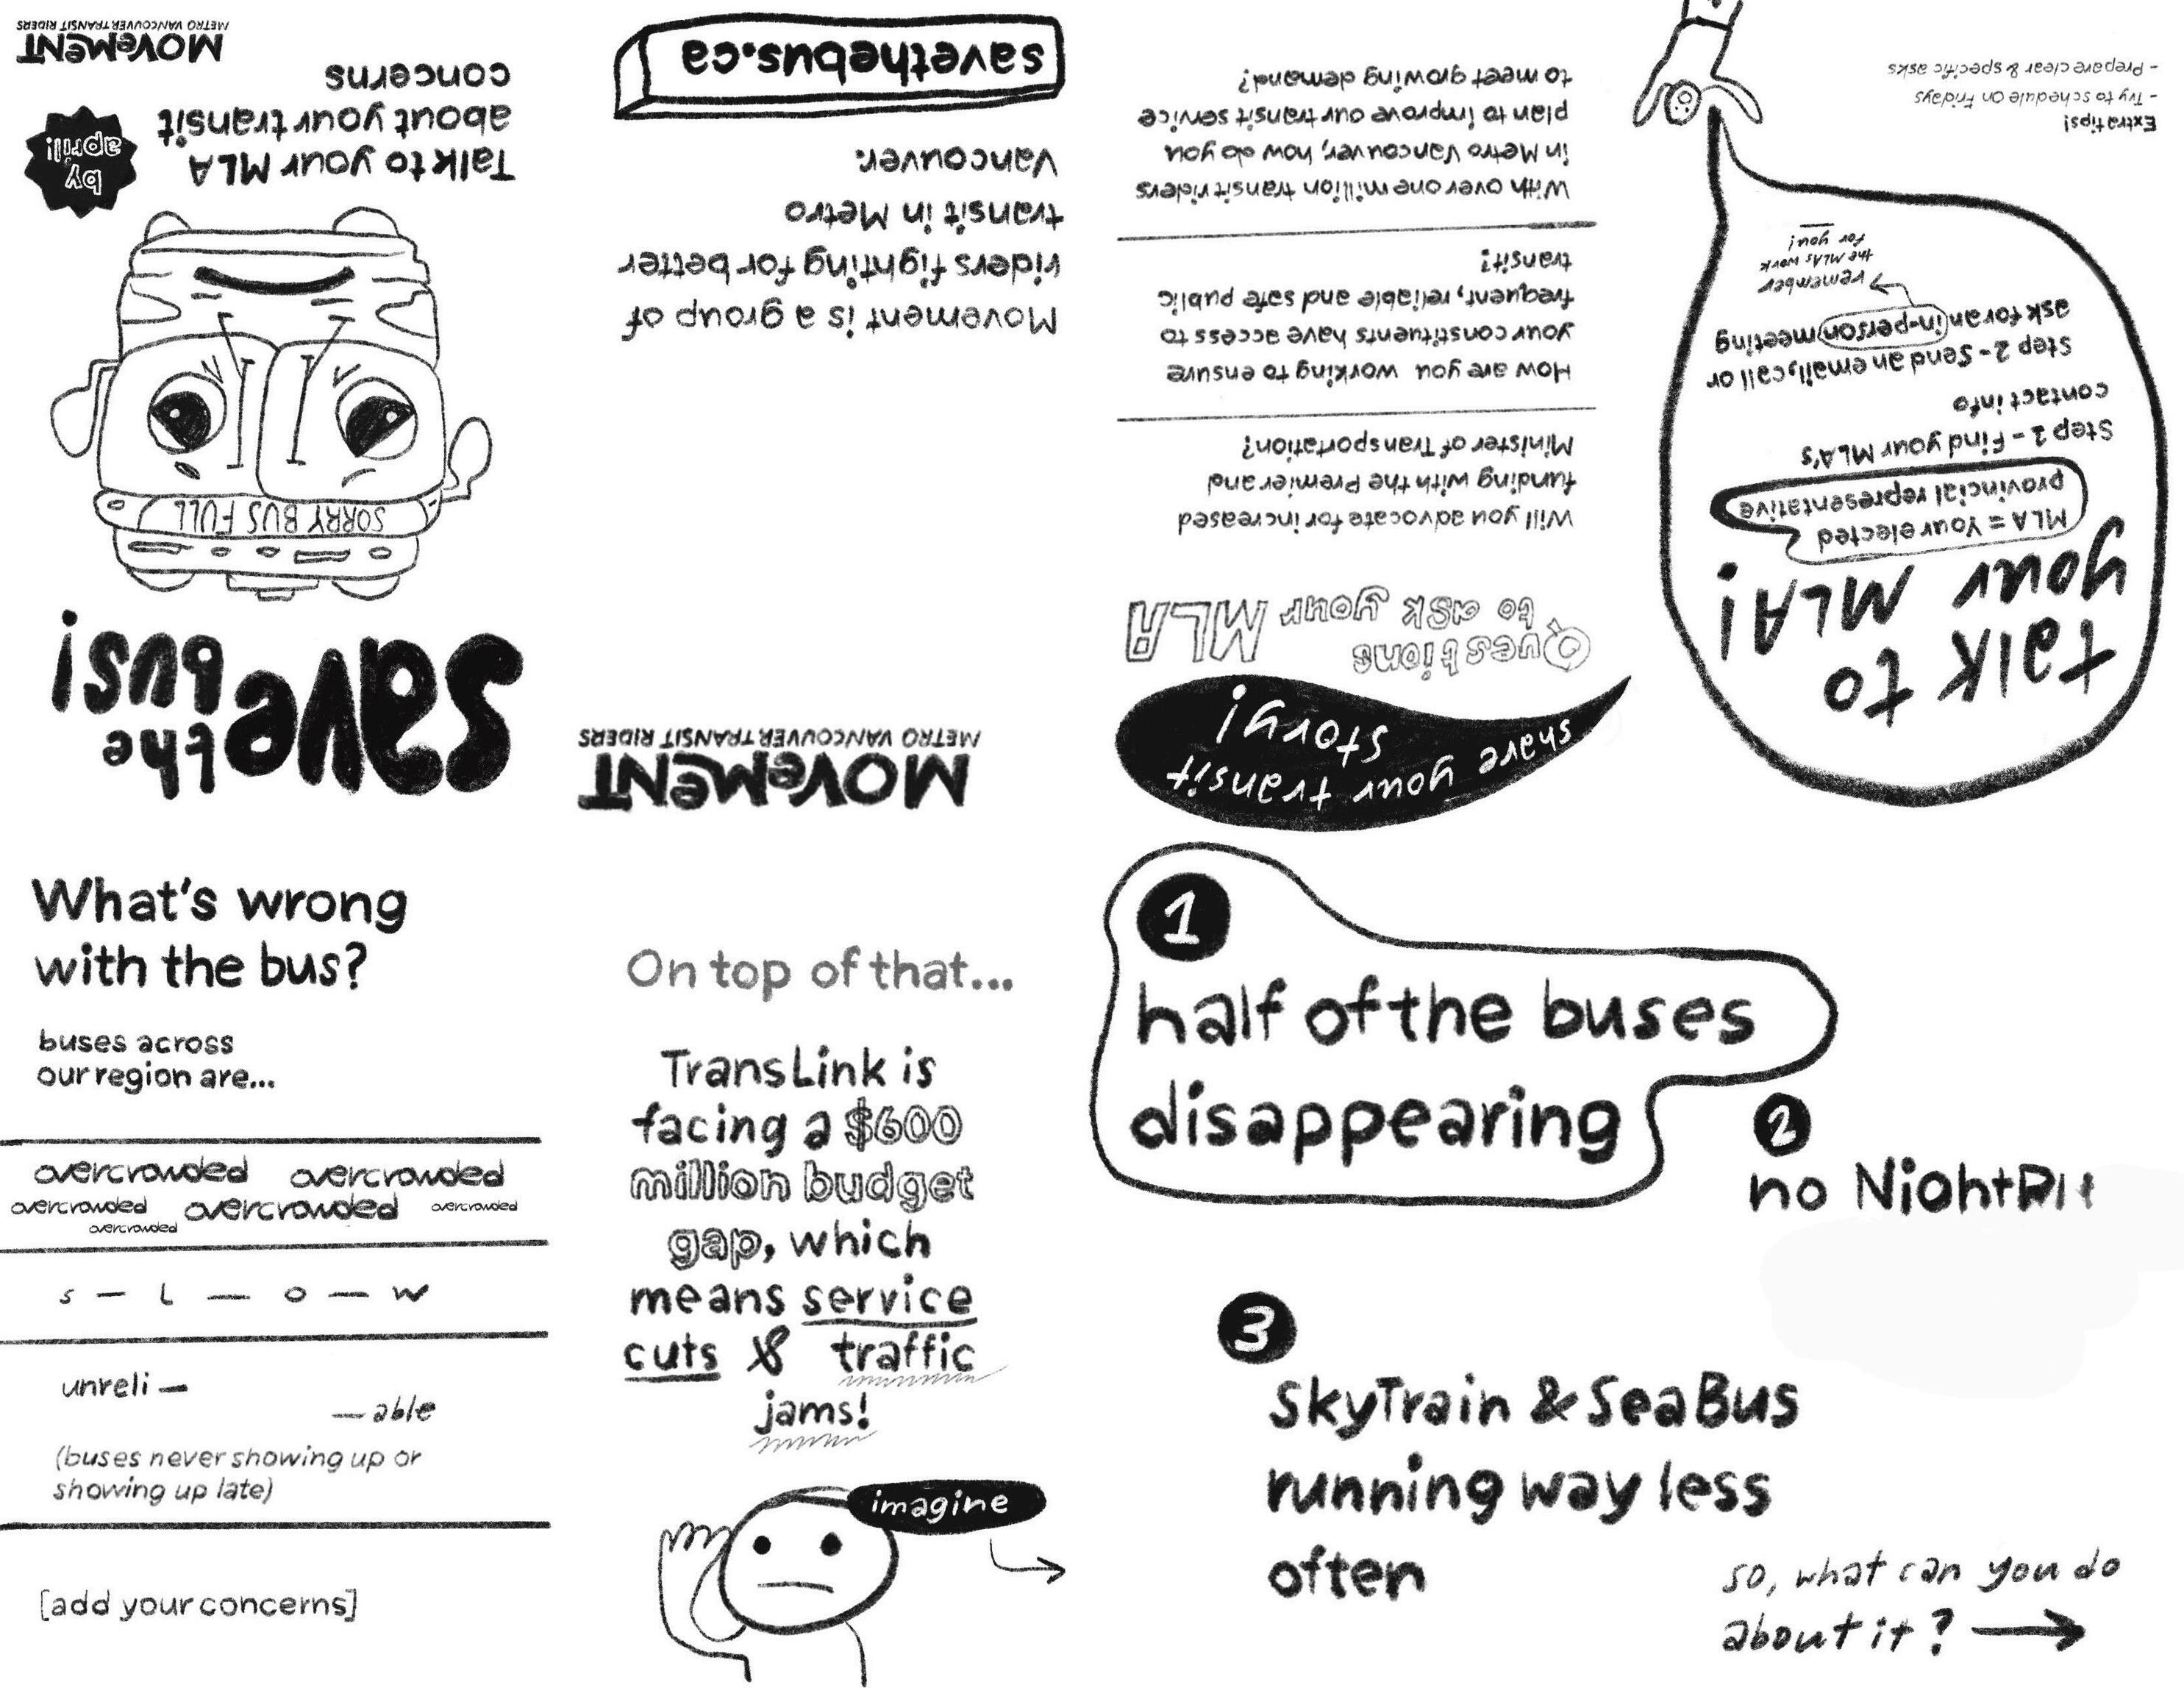 save
the
bus!
SORRY BUS FULL
Talk to your MLA
about your transit
concerns
by
april!
MOVEMENT
METRO VANCOUVER TRANSIT RIDERS
What's wrong
with the bus?
buses across
our region are...
overcrowded overcrowded
overcrowded overcrowded overcrowded
overcrowded
s — l — o — w
unreli —
— able
(buses never showing up or
showing up late)
[add your concerns]
On top of that...
TransLink is
facing a $600
million budget
gap, which
means service
cuts & traffic
jams!
imagine
1
half of the buses
disappearing
2
no
3
SkyTrain & SeaBus
running way less
often
so, what can you do
about it?
talk to
your MLA!
MLA = Your elected
provincial representative
Step 1 - Find your MLA's
contact info
Step 2 - Send an email, call or
ask for an in-person meeting
remember
the MLAs work
for you!
Extra tips!
- Try to schedule on Fridays
- Prepare clear & specific asks
share your transit
story!
Questions
to ask your MLA
Will you advocate for increased
funding with the Premier and
Minister of Transportation?
How are you working to ensure
your constituents have access to
frequent, reliable and safe public
transit?
With over one million transit riders
in Metro Vancouver, how do you
plan to improve our transit service
to meet growing demand?
MOVEMENT
METRO VANCOUVER TRANSIT RIDERS
Movement is a group of
riders fighting for better
transit in Metro
Vancouver.
savethebus.ca